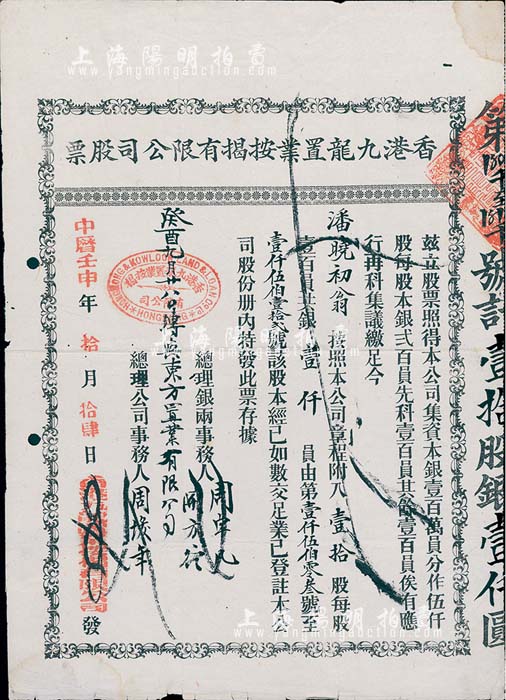 上海陽明拍賣
www.yangmingauction.com
香港九龍置業按揭有限公司股票
號計壹拾股銀壹仟圓
茲立股票照得本公司集資本銀壹百萬員分作伍仟
股每股本銀弍百員先科壹百員其餘壹百員俟有應
行再科集議繳足今
潘曉初翁 遵照本公司章程附入 壹拾 股每股
壹百員共銀 壹仟 員由第壹仟伍佰零叁號至
壹仟伍佰壹拾弍號該股本經已如數交足業已登註本
公司股份冊內特發此票存據
總理銀兩事務人
總理公司事務人 周
癸酉 東方置業有限公司
HONGKONG & KOWLOON LAND & LOAN CO
香港九龍置業按揭有限公司
HONGKONG
中曆壬申年 拾月 拾肆日 發